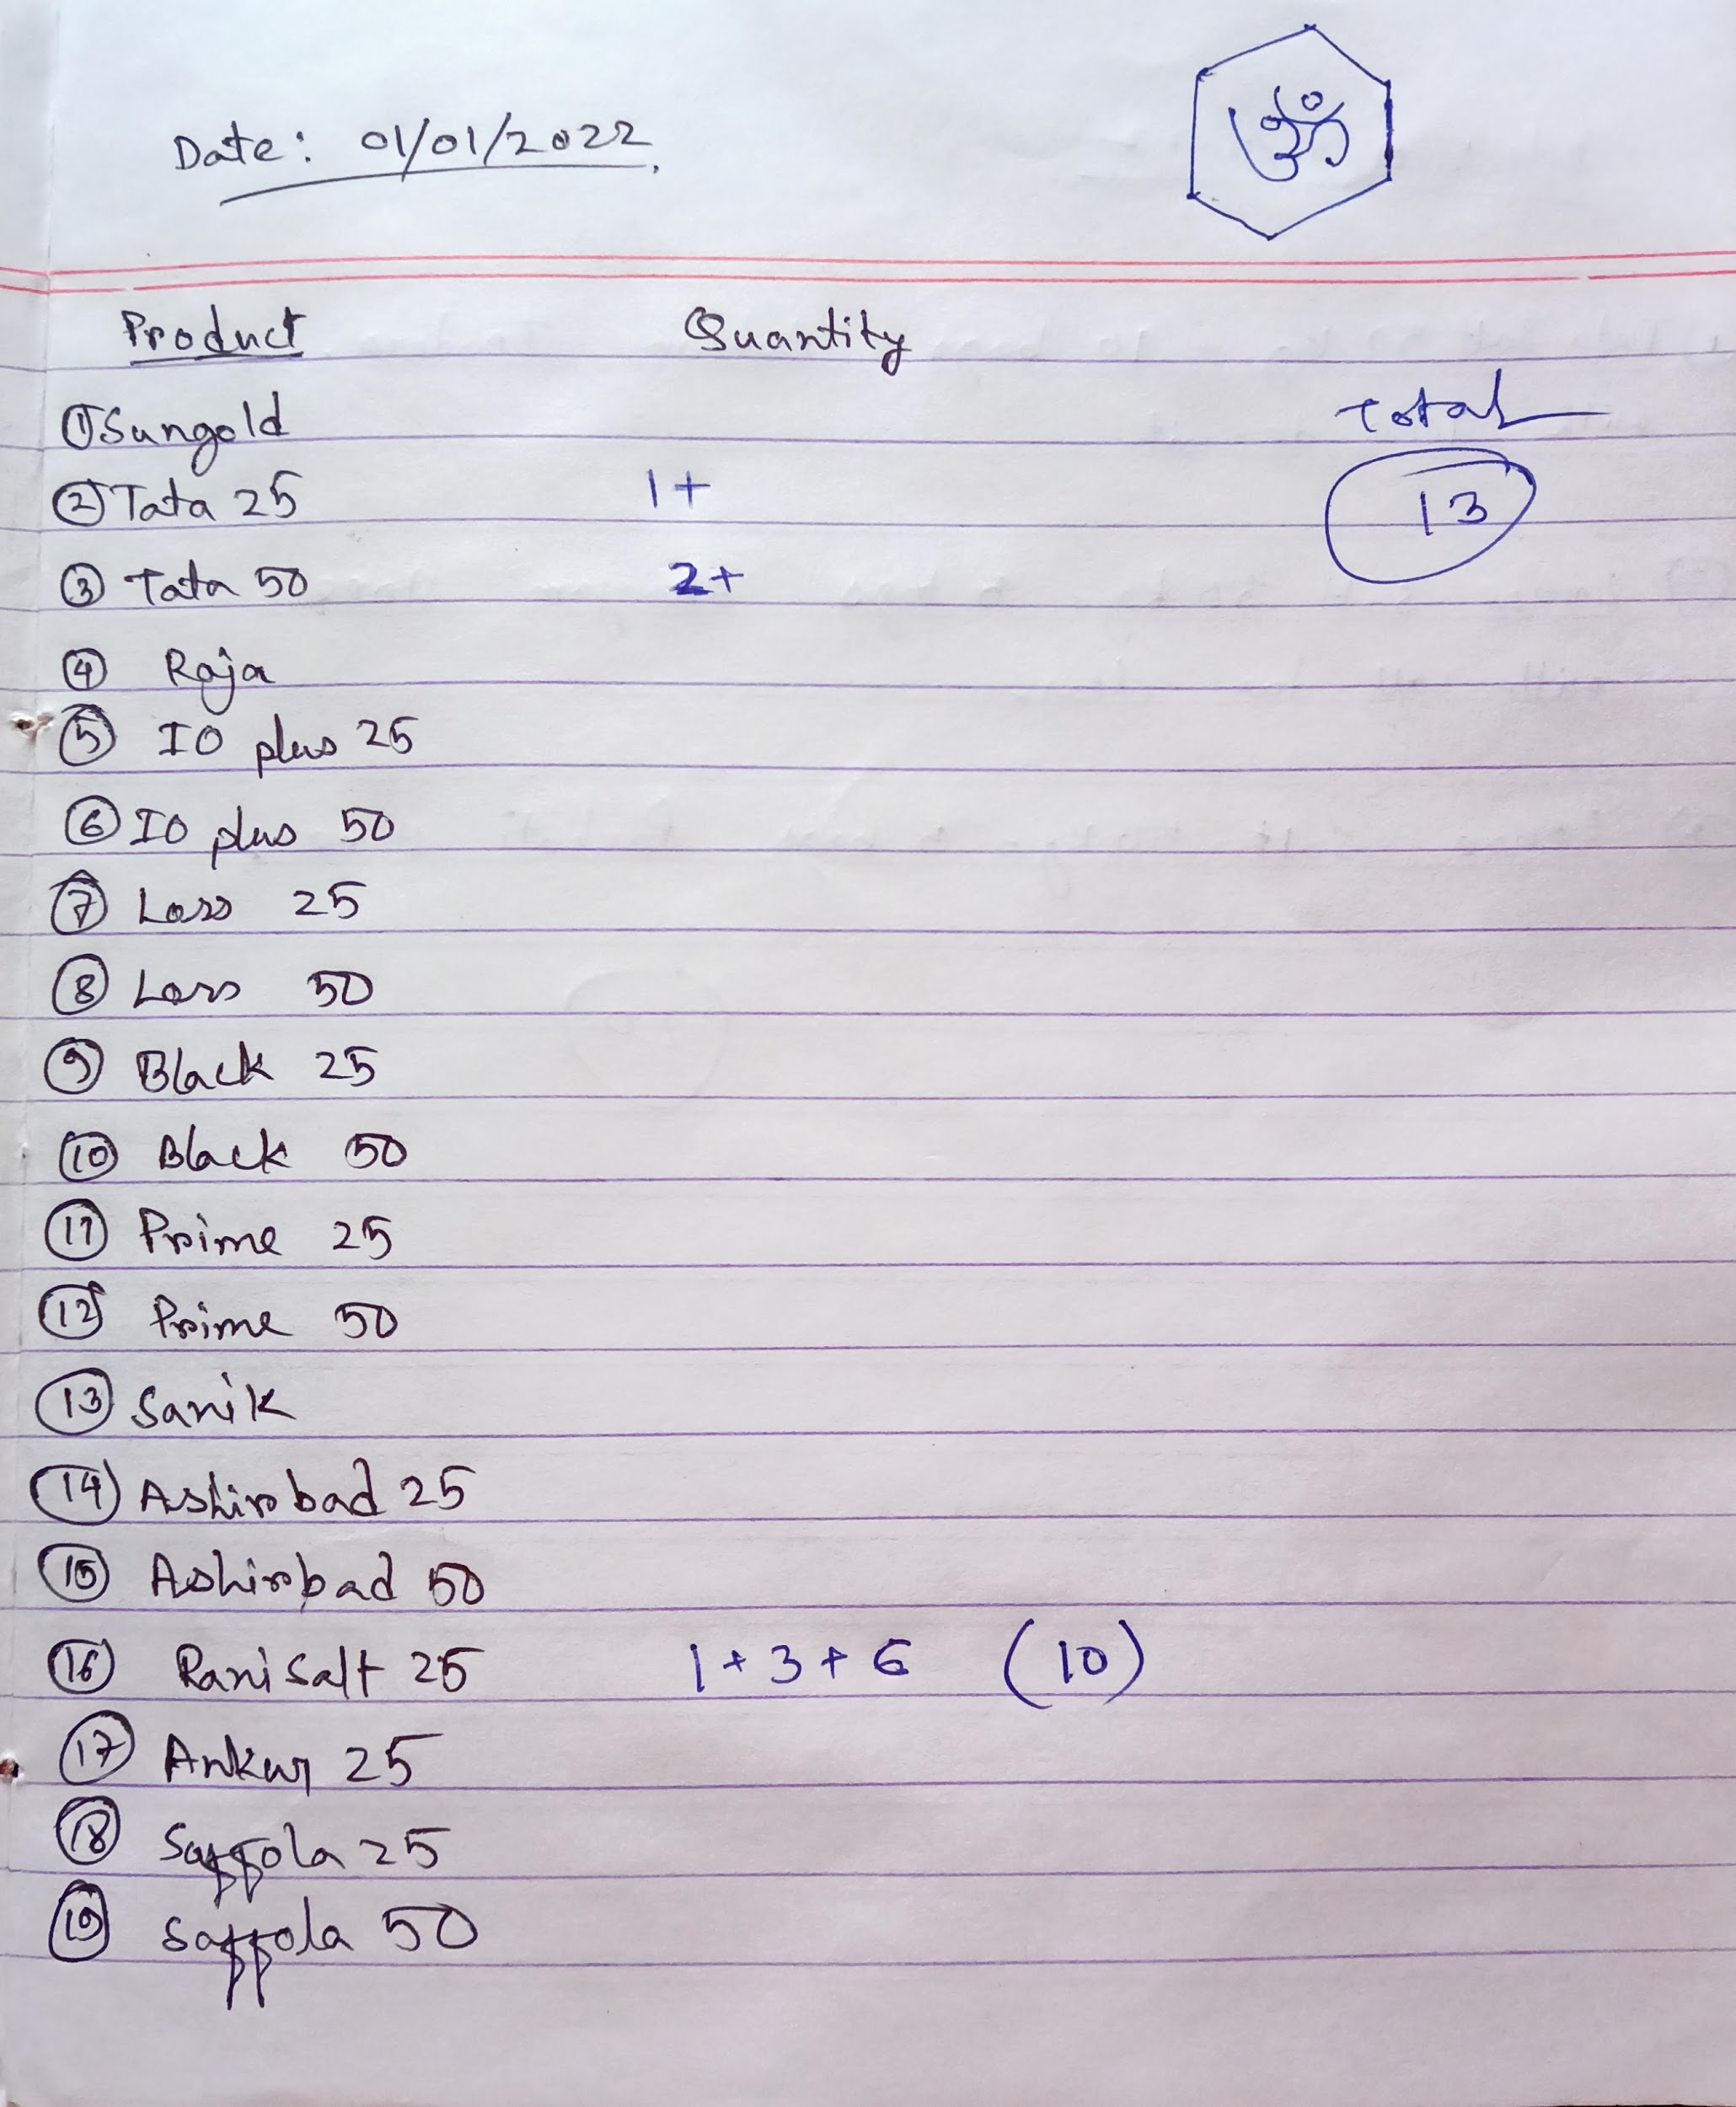 Date: 01/01/2022
ॐ
Product Quantity
① Sungold
Total
② Tata 25 1+
13
③ Tata 50 2+
④ Raja
⑤ IO plus 25
⑥ IO plus 50
⑦ Loss 25
⑧ Loss 50
⑨ Black 25
⑩ Black 50
⑪ Prime 25
⑫ Prime 50
⑬ Sanik
⑭ Ashirbad 25
⑮ Ashirbad 50
⑯ Rani Salt 25 1+3+6 (10)
⑰ Ankur 25
⑱ Saffola 25
⑲ Saffola 50